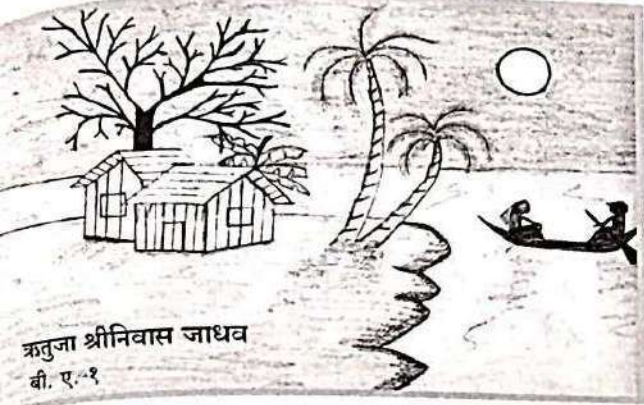 ऋतुजा श्रीनिवास जाधव
बी. ए.-१